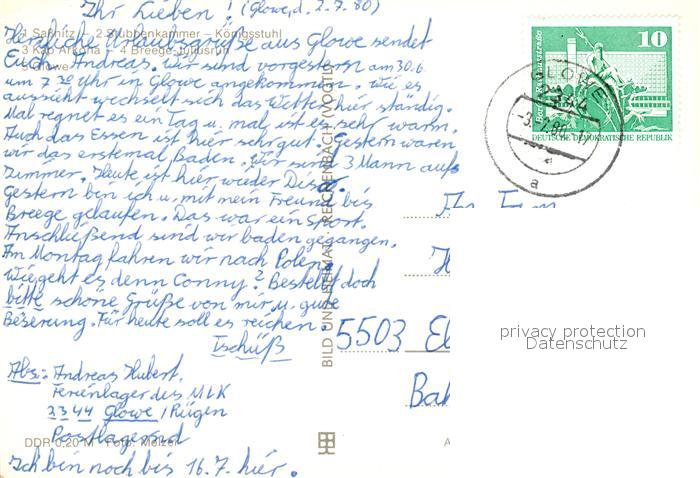 Ihr Lieben! (Glowe, d. 2.7.80)
1 Saßnitz 2 Stubbenkammer – Königsstuhl
3 Kap Arkona 4 Breege-Juliusruh
5 Glowe
Herzliche Urlaubsgrüße aus Glowe sendet
Euch Andreas. Wir sind vorgestern am 30.6
um 7 30 Uhr in Glowe angekommen. Wie es
aussieht wechselt sich das Wetter hier ständig.
Mal regnet es ein Tag u. mal ist es sehr warm.
Auch das Essen ist hier sehr gut. Gestern waren
wir das erstemal Baden. Wir sind 3 Mann aufs
Zimmer. Heute ist hier wieder Disco.
Gestern bin ich u. mit mein Freund bis
Breege gelaufen. Das war ein Sport.
Anschließend sind wir baden gegangen.
Am Montag fahren wir nach Polen.
Wie geht es denn Conny? Bestellt doch
bitte schöne Grüße von mir u. gute
Beserung. Für heute soll es reichen.
Tschüß
Abs: Andreas Hubert.
Ferienlager des MLK
2344 Glowe / Rügen
Postlagernd
DDR 0,20 M Foto: Melzer
Ich bin noch bis 16.7. hier.
BILD UND HEIMAT REICHENBACH (VOGTL)
10
DEUTSCHE DEMOKRATISCHE REPUBLIK
GLOWE
2344
-3.7.80
a
Fam
5503 El
Bah
A
privacy protection
Datenschutz